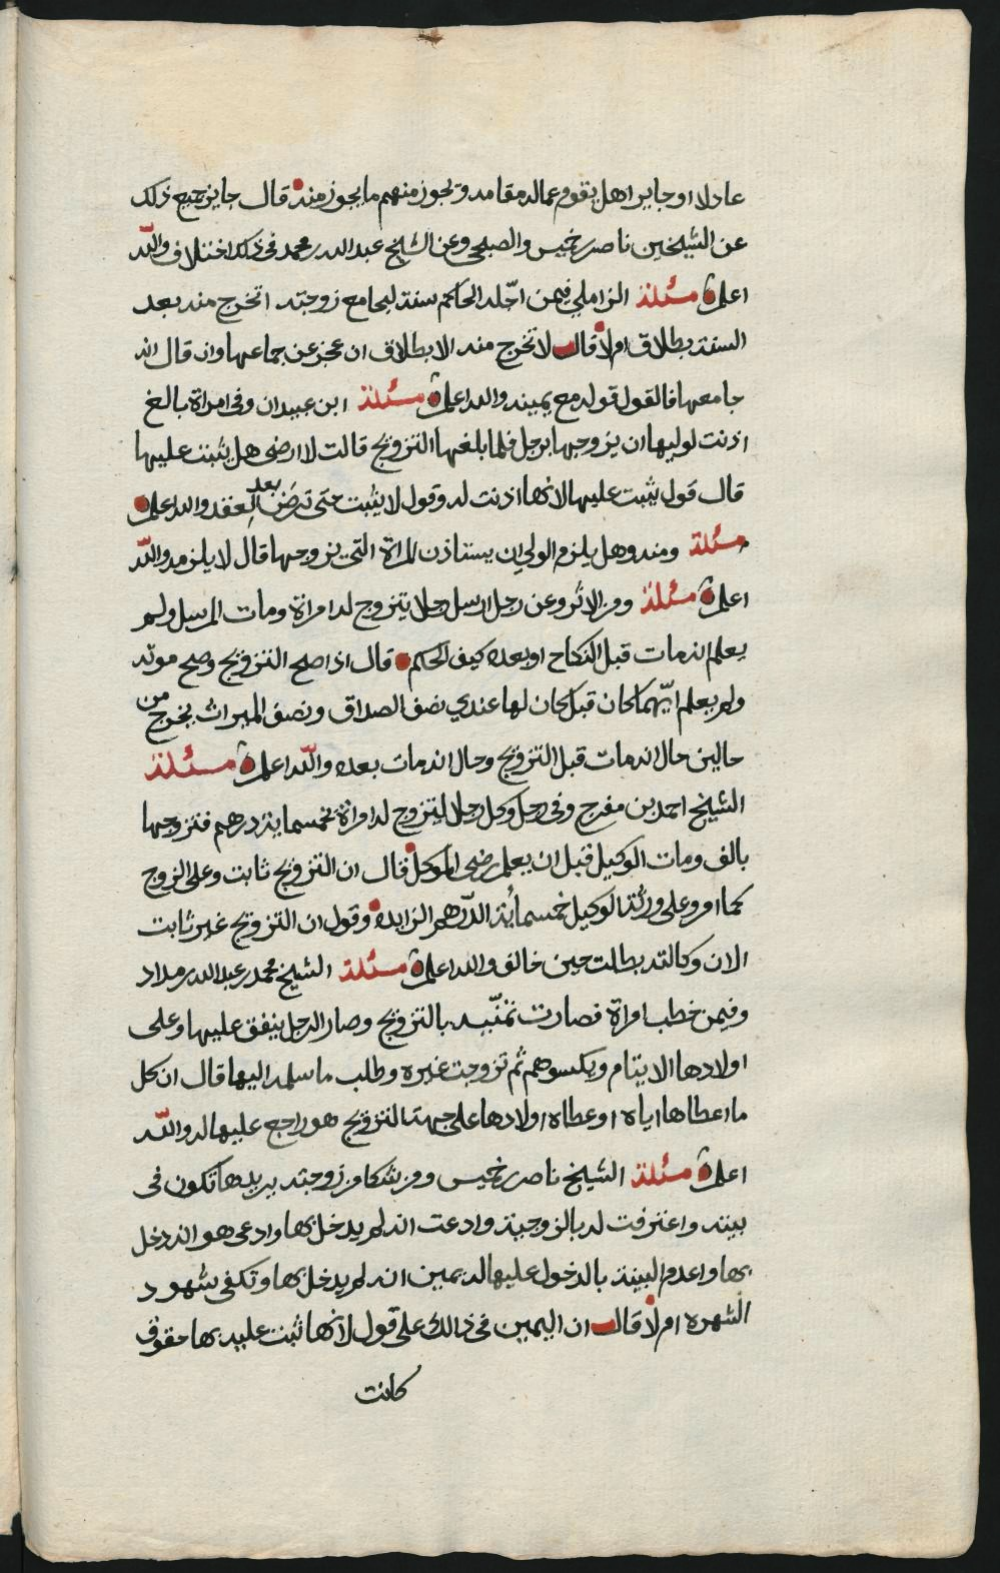 عادلا او جايرا هل يقوم عماله مقامه ويجوز منهم ما يجوز منه قال جايز جميع ذلك
عن الشيخين ناصر بن خميس والصبحي وعن الشيخ عبدالله بن محمد في ذلك اختلاف والله
اعلم مسئلة الزاملي فيمن اجّله الحاكم سنة ليجامع زوجته اتخرج منه بعد
السنة بطلاق ام لا قال لا تخرج منه الا بطلاق ان عجز عن جماعها وان قال انه
جامعها فالقول قوله مع يمينه والله اعلم مسئلة ابن عبيدان وفي امراة بالغ
اذنت لوليها ان يزوجها برجل فلما بلغها التزويج قالت لا ارضى هل يثبت عليها
قال قول يثبت عليها لانها اذنت له وقول لا يثبت حتى ترضى بعد العقد والله اعلم
مسئلة ومنه وهل يلزم الولي ان يستاذن المراة التي يزوجها قال لا يلزمه والله
اعلم مسئلة ومن الاثر وعن رجل ارسل رجلا يتزوج له امراة ومات المرسل ولم
يعلم انه مات قبل النكاح او بعده كيف الحكم قال اذا صح التزويج وصح موته
ولم يعلم ايّهما كان قبل كان لها عندي نصف الصداق ونصف الميراث يخرج من
حالين حال انه مات قبل التزويج وحال انه مات بعده والله اعلم مسئلة
الشيخ احمد بن مفرج وفي رجل وكل رجلا ليتزوج له امراة بخمسماية درهم فتزوجها
بالف ومات الوكيل قبل ان يعلم رضى الموكل قال ان التزويج ثابت وعلى الزوج
كما امر وعلى ورثة الوكيل خمسماية الدّرهم الزايده وقول ان التزويج غير ثابت
الان وكالته بطلت حين خالف والله اعلم مسئلة الشيخ محمد بن عبدالله بن مداد
وفيمن خطب امراة فصارت تمنّيه بالتزويج وصار الرجل ينفق عليها وعلى
اولادها الايتام ويكسوهم ثم تزوجت غيره وطلب ما سلمه اليها قال ان كل
ما اعطاها اياه او عطاه اولادها على جهة التزويج هو راجع عليها له والله
اعلم مسئلة الشيخ ناصر بن خميس ومن شكا من زوجته يريدها تكون في
بيته واعترفت له بالزوجية وادعت انه لم يدخل بها وادعى هو انه دخل
بها واعدم البينة بالدخول عليها له يمين انه لم يدخل بها وتكفي شهود
الشهره ام لا قال ان اليمين في ذالك على قول لانها ثبت عليه بها حقوق
كانت